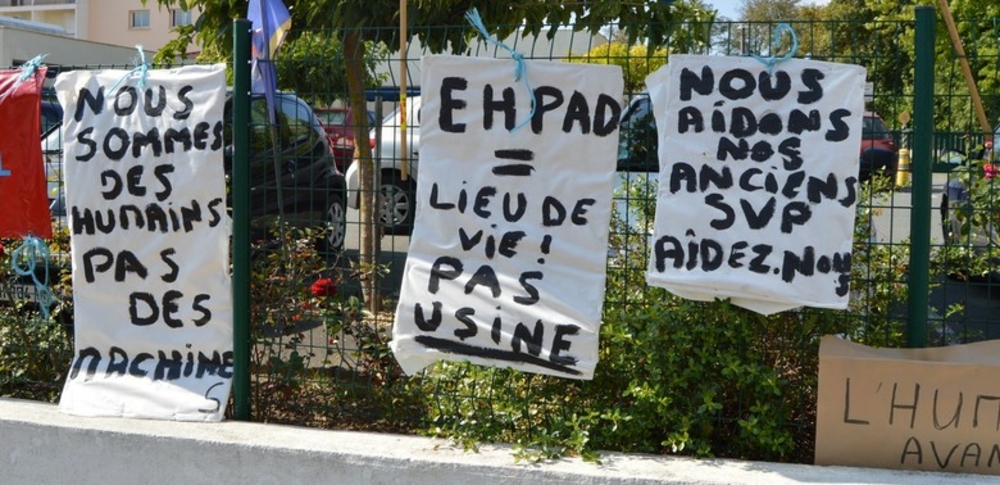 NOUS
SOMMES
DES
HUMAINS
PAS
DES
MACHINES
EHPAD
=
LIEU DE
VIE!
PAS
USINE
NOUS
AIDONS
NOS
ANCIENS
SVP
AÎDEZ.NOUS
L'HUM
AVAN